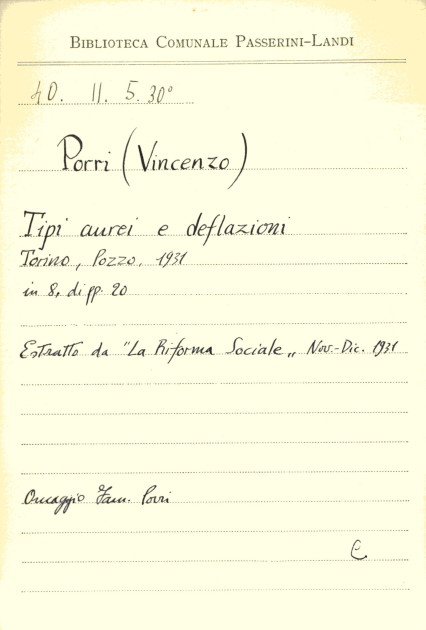 BIBLIOTECA COMUNALE PASSERINI-LANDI
40. II. 5. 30°
Porri (Vincenzo)
Tipi aurei e deflazioni
Torino, Pozzo, 1931
in 8, di pp. 20
Estratto da "La Riforma Sociale„ Nov.-Dic. 1931
Omaggio Fam. Porri
C